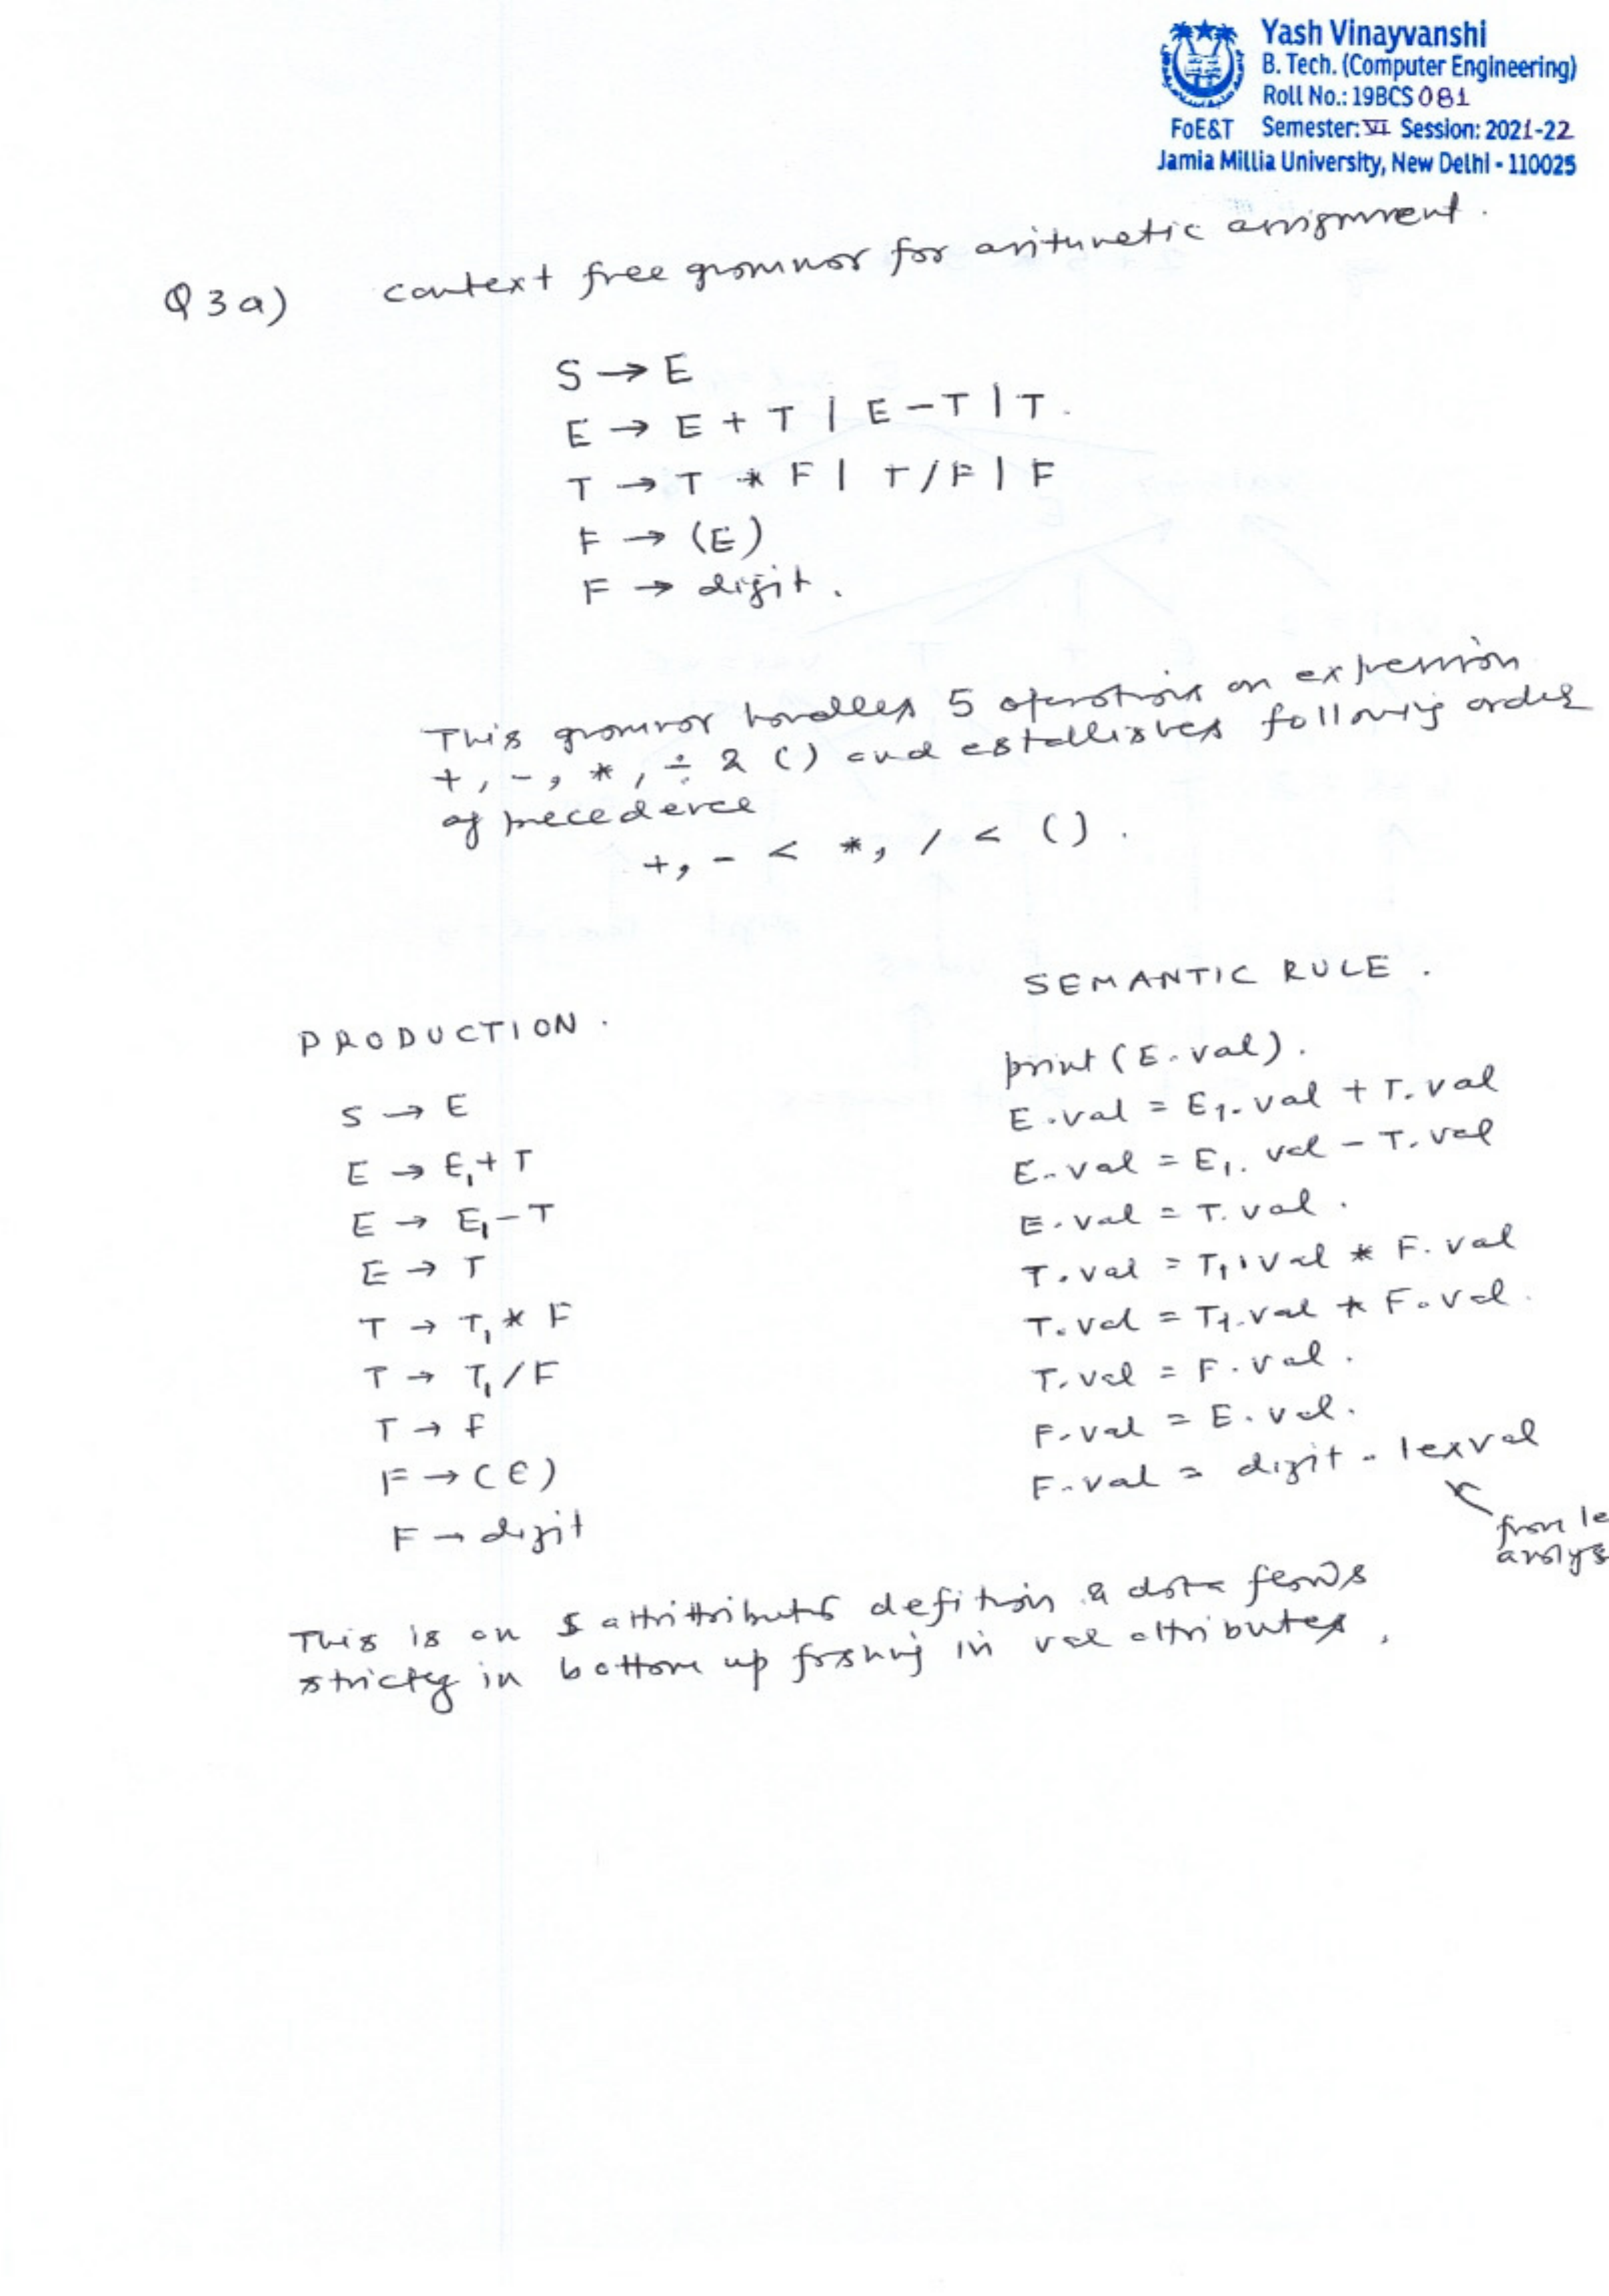 Yash Vinayvanshi
B. Tech. (Computer Engineering)
Roll No.: 19BCS081
FoE&T Semester: VI Session: 2021-22
Jamia Millia University, New Delhi - 110025
Q3a) context free grammar for arithmetic assignment.
S → E
E → E + T | E - T | T.
T → T * F | T/F | F
F → (E)
F → digit.
This grammar handles 5 operations on expression
+, -, *, ÷ & () and establishes following order
of precedence
+, - < *, / < ().
PRODUCTION. SEMANTIC RULE.
S → E print (E.val).
E → E1 + T E.val = E1.val + T.val
E → E1 - T E.val = E1.val - T.val
E → T E.val = T.val.
T → T1 * F T.val = T1.val * F.val
T → T1 / F T.val = T1.val * F.val.
T → F T.val = F.val.
F → (E) F.val = E.val.
F → digit F.val = digit.lexval
from le
analys
This is an S defition & data
strictly in bottom up in val attributes.